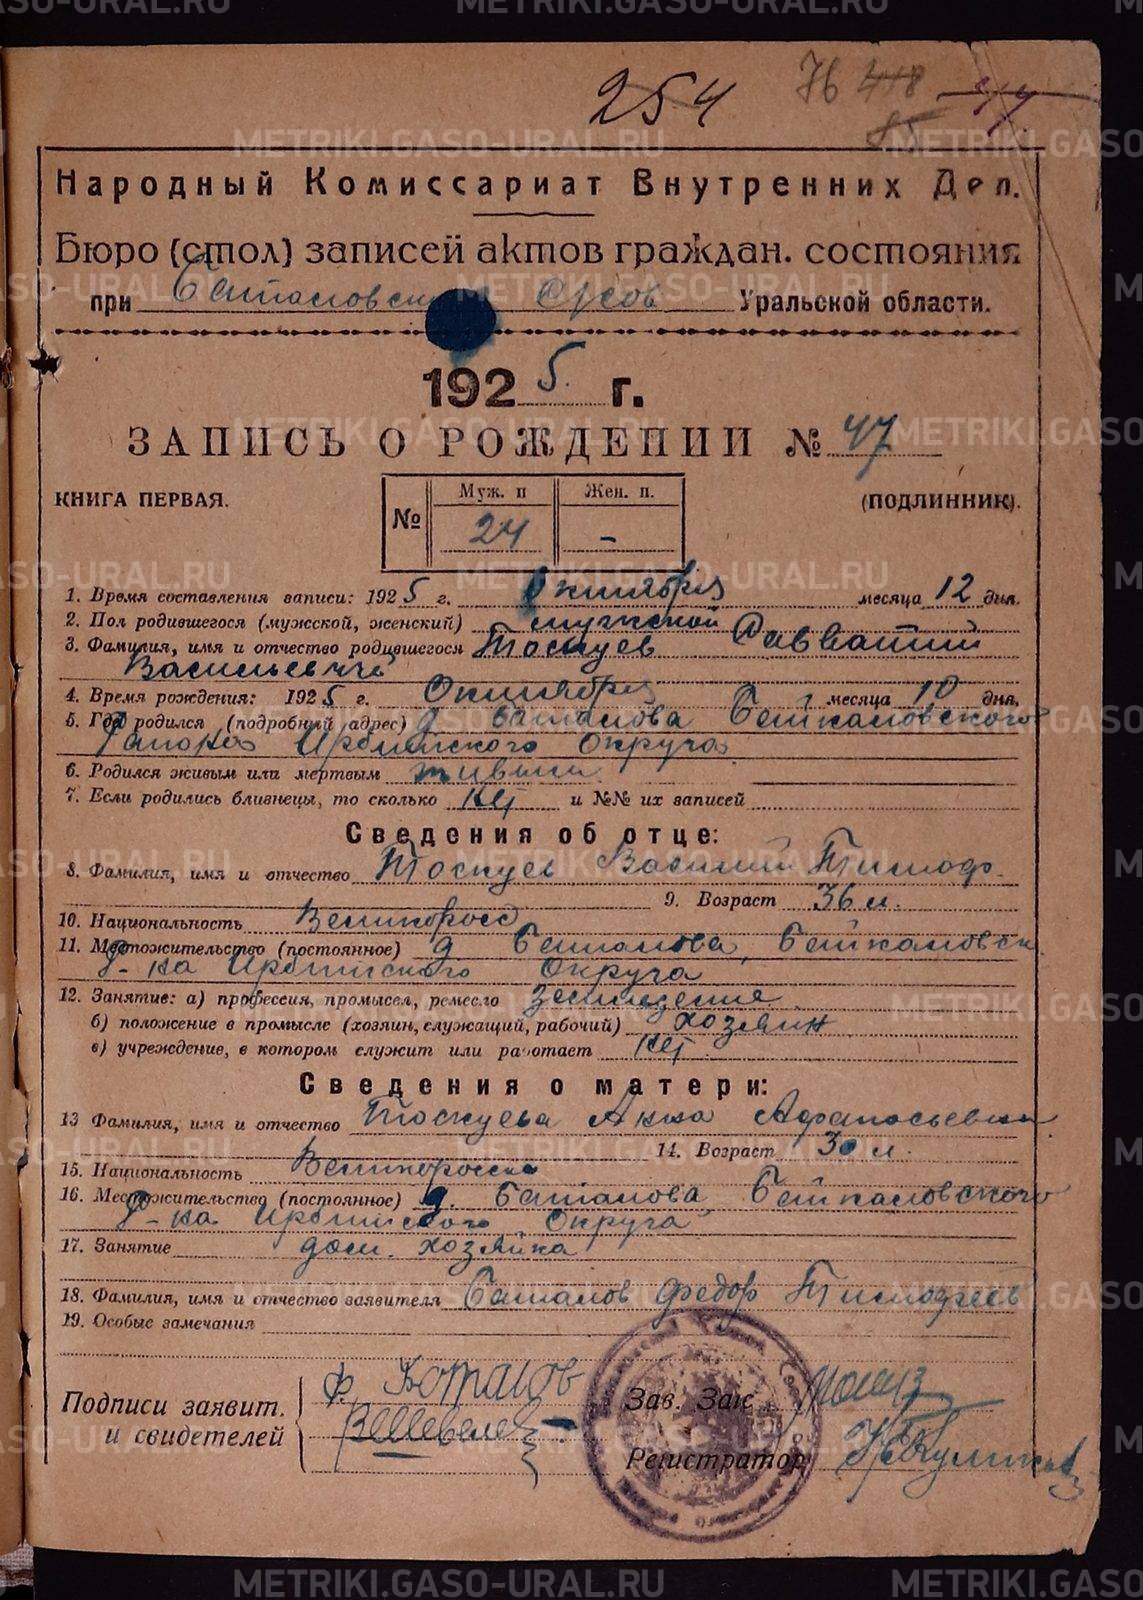 254 76 418
85
Народный Комиссариат Внутренних Дел.
Бюро (стол) записей актов граждан. состояния
при Уральской области.
1925 г.
ЗАПИСЬ О РОЖДЕНИИ № 47
КНИГА ПЕРВАЯ.
(ПОДЛИННИК).
№ Муж. п Жен. п.
24 -
1. Время составления записи: 1925 г. Октября месяца 12 дня.
2. Пол родившегося (мужской, женский) мужской
3. Фамилия, имя и отчество родившегося Тоскуев Савватий
Васильевич
4. Время рождения: 1925 г. Октября месяца 10 дня.
5. Где родился (подробный адрес) д Баталова
Района Ирбитского Округа
6. Родился живым или мертвым живым
7. Если родились близнецы, то сколько нет и №№ их записей
Сведения об отце:
8. Фамилия, имя и отчество Тоскуев Василий Тимоф.
9. Возраст 36 л.
10. Национальность Великоросс
11. Местожительство (постоянное) д Баталова,
Р-на Ирбитского Округа
12. Занятие: а) профессия, промысел, ремесло
б) положение в промысле (хозяин, служащий, рабочий) хозяин
в) учреждение, в котором служит или работает нет
Сведения о матери:
13 Фамилия, имя и отчество Тоскуева Анна Афанасьевна
14. Возраст 30 л.
15. Национальность Великоросска
16. Местожительство (постоянное) д. Баталова,
Р-на Ирбитского Округа
17. Занятие дом. хозяйка
18. Фамилия, имя и отчество заявителя Баталов Федор Тимофеев
19. Особые замечания
Подписи заявит.
и свидетелей
Ф. Баталов
Зав. Загс
Регистратор
METRIKI.GASO-URAL.RU